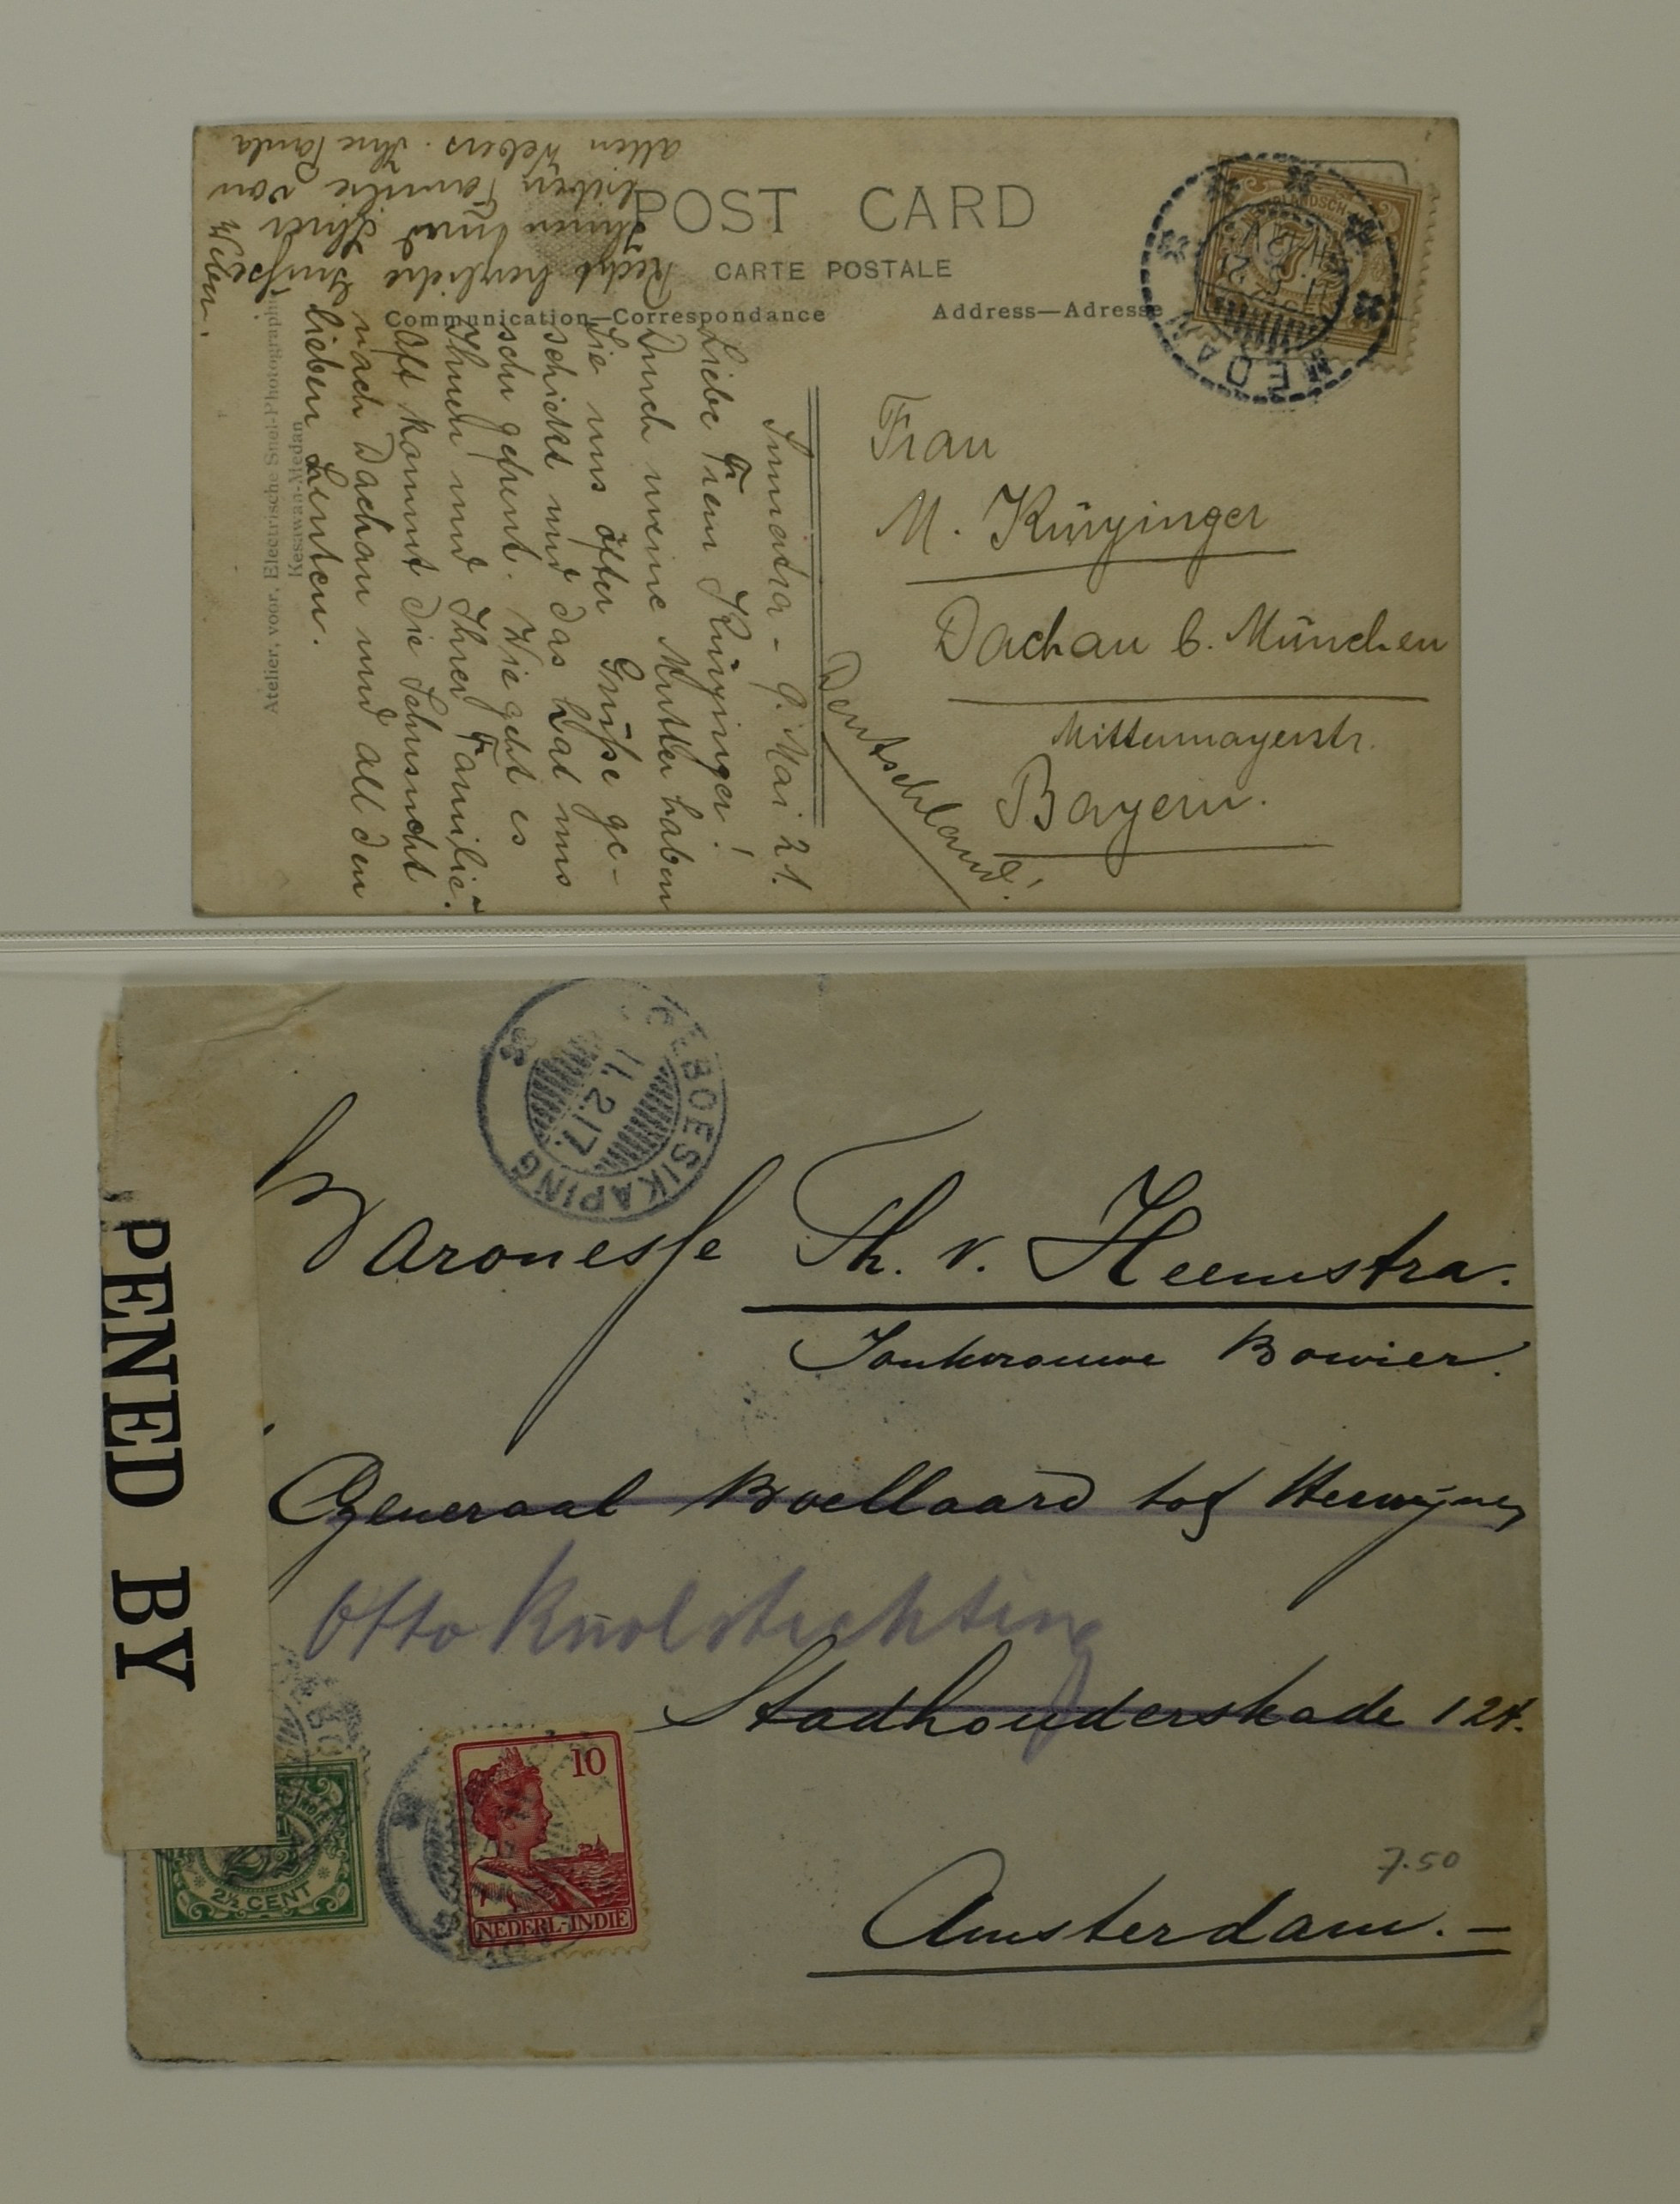 POST CARD
CARTE POSTALE
Communication—Correspondance
Address—Adresse
NEDERLANDSCH-INDIE
7½
MEDAN
Frau
M. Künzinger
Dachau b. München
Mittermayerstr.
Bayern.
Deutschland!
Sumatra - 9. Mai 21.
Liebe Frau Künzinger!
Durch meine Mutter haben
Sie uns öfter Grüße ge-
schickt und das hat uns
sehr gefreut. Wie geht es
Ihnen und Ihrer Familie?
Oft kommt die Sehnsucht
nach Dachau und all den
lieben Leuten.
Recht herzliche Grüße
Ihnen und Ihrer
lieben Familie von
allen Webers. Ihre Paula
Weber.
Atelier. voor. Electrische Snel-Photographie
Kesawan-Medan
GEBOESIKAPING
11.2.17.
PENED BY
Baronesse Th. v. Heemstra.
Jonkvrouwe Bowier.
Generaal Boellaard tot Herwijnen
Otto Knolstichting
Stadhouderskade 124.
Amsterdam.-
7.50
2½ CENT
10
NEDERL-INDIË